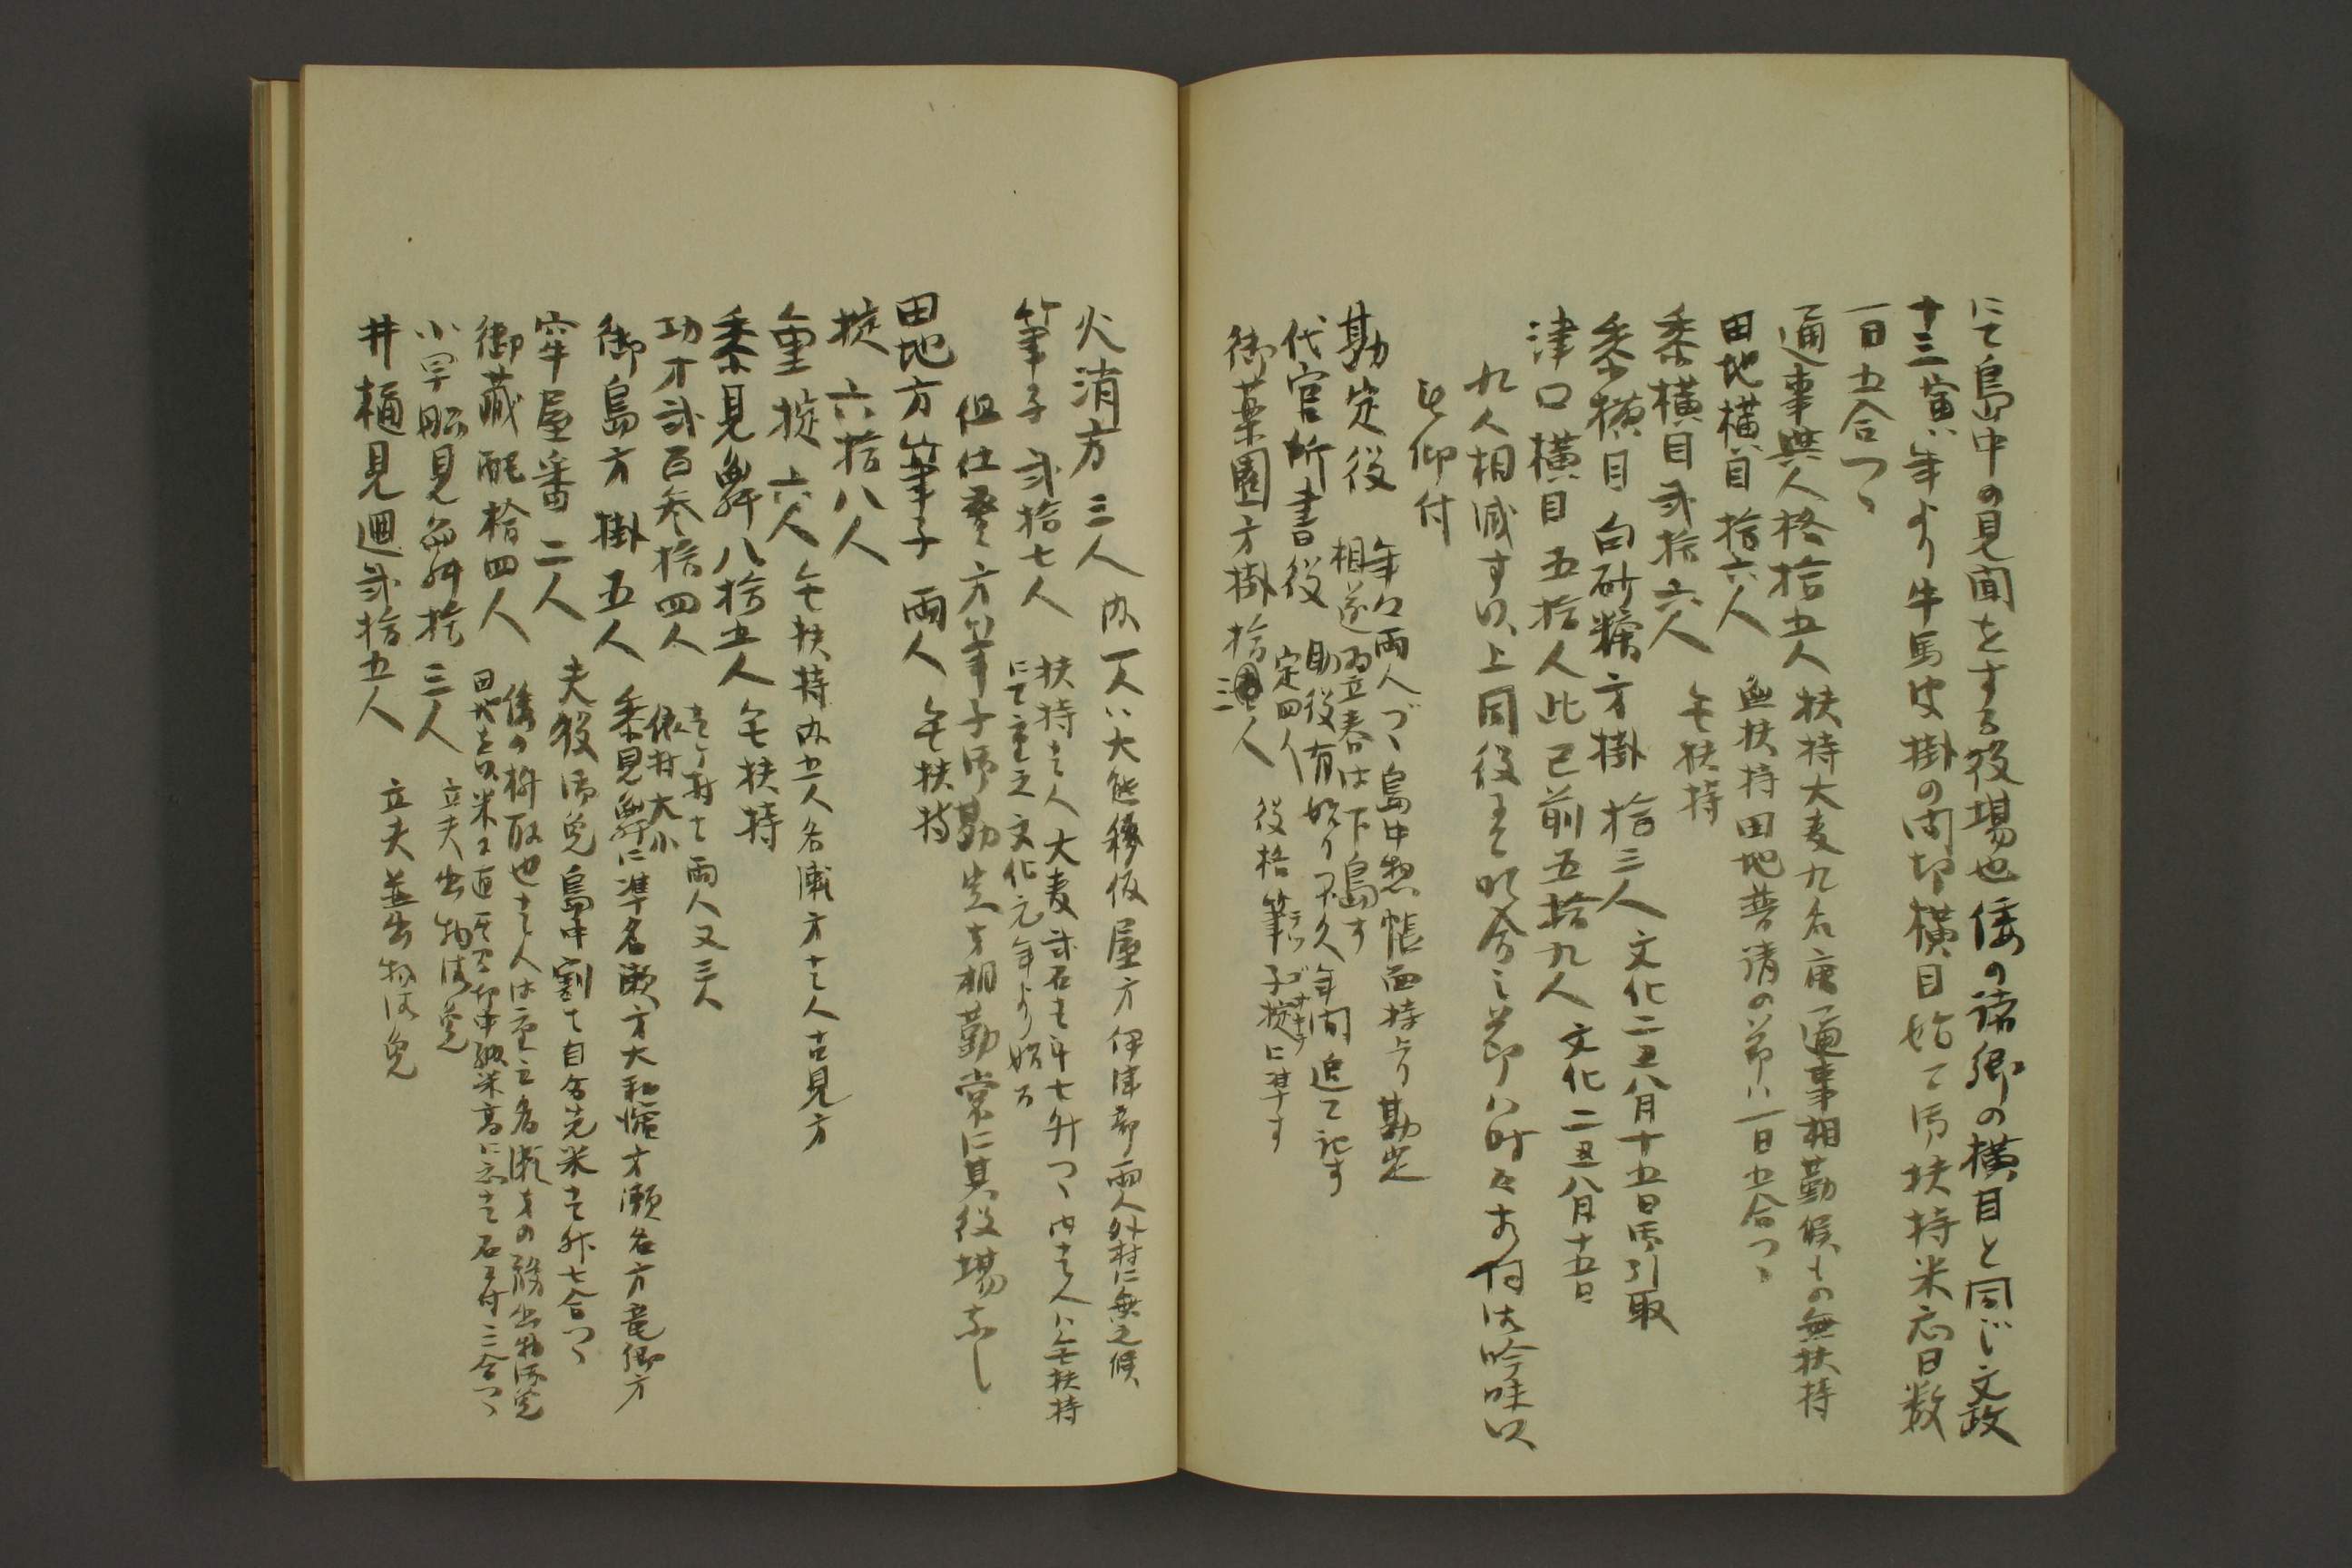 にて島中の見聞をする役場也倭の諸郷の横目と同じ文政
十三寅年より牛馬皮掛の間切横目始て御扶持米応日数
一日五合つゝ
通事與人格拾五人 扶持大麦九石唐通事相勤候もの無扶持
田地横目拾六人 無扶持田地普請の節ハ一日五合つゝ
黍横目弐拾六人 無扶持
黍横目白砂糖方掛 拾三人 文化二丑八月十五日御引取
津口横目五拾人此已前五拾九人 文化二丑八月十五日
九人相減す以上同役
被仰付
勘定役 年々両人づゝ島中惣帳面持上り勘定
相遂翌立春は下島す
代官所書役 定四人
助役有始り不久年間追て記す
御薬園方掛拾三人 役格筆子掟に準す
火消方三人 内一人ハ大熊移仮屋方伊津部両人外村に無之候
筆子弐拾七人 扶持壱人大麦弐石壱斗七升つゝ内壱人ハ無扶持
にて重之文化元年より始る
但仕登方筆子御勘定方相勤常に其役場なし
田地方筆子両人 無扶持
掟六拾八人
重掟六人 無扶持内五人名瀬方壱人古見方
黍見舞八拾五人 無扶持
功才弐百参拾四人 壱ケ村壱両人又三人
依村大小
御島方掛五人 黍見舞に準名瀬方大和濱方瀬名方竜郷方
牢屋番二人 夫役御免島中割て自分先米壱升七合つゝ
御蔵配拾四人
小早船見舞拾三人 立夫出物御免
井樋見廻弐拾五人 立夫並出物御免